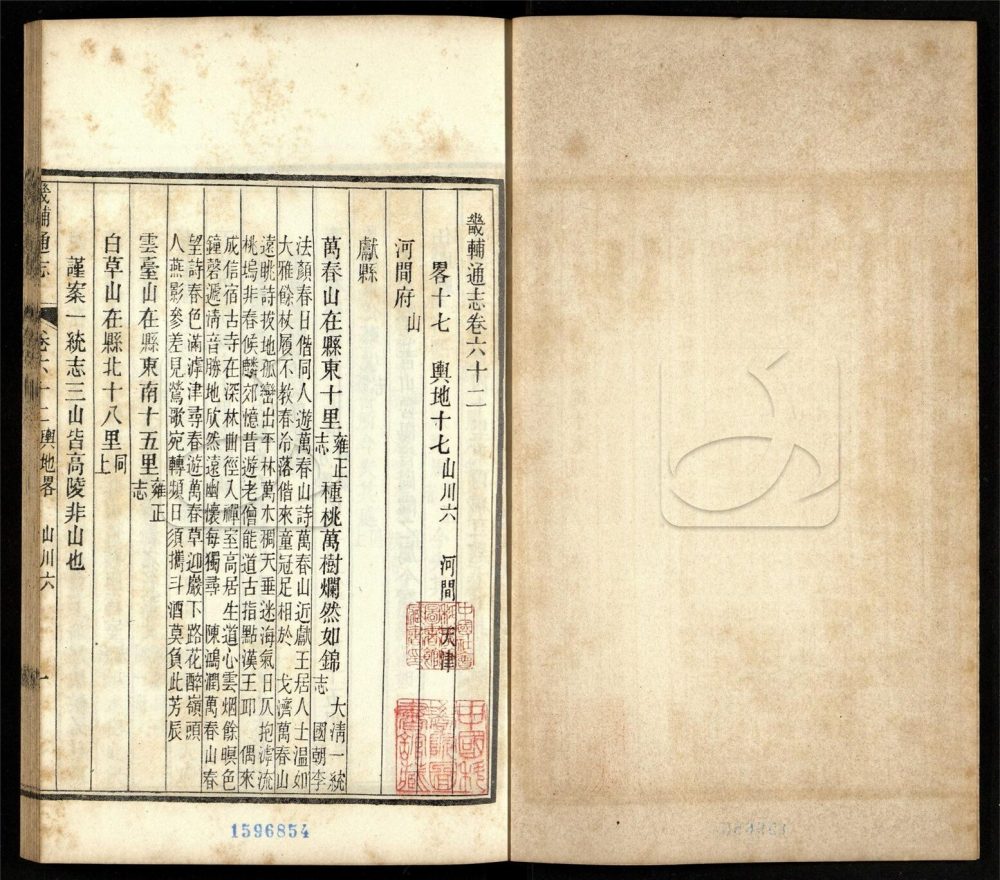 畿輔通志卷六十二
畧十七 輿地十七 山川六 河間 天津
河間府 山
獻縣
萬春山在縣東十里 雍正志 種桃萬樹爛然如錦 大清一統志 國朝李
法顏春日偕同人遊萬春山詩萬春山近獻王居人士溫如
大雅餘杖履不教春冷落偕來童冠足相於 戈濟萬春山
遠眺詩拔地孤巒出平林萬木稠天垂迷海氣日仄抱滹流
桃塢非春候麟郊憶昔遊老僧能道古指點漢王邱 偶來
成信宿古寺在深林曲徑入禪室高居生道心雲烟餘暝色
鐘磬遞清音勝地欣然遠幽懷每獨尋 陳鴻潤萬春山春
望詩春色滿滹津尋春遊萬春草迎巖下路花醉嶺頭
人燕影參差見鶯歌宛轉頻日須攜斗酒莫負此芳辰
雲臺山在縣東南十五里 雍正志
白草山在縣北十八里 同上
謹案一統志三山皆高陵非山也
畿輔通志 卷六十二 輿地畧 山川六 一
1596854